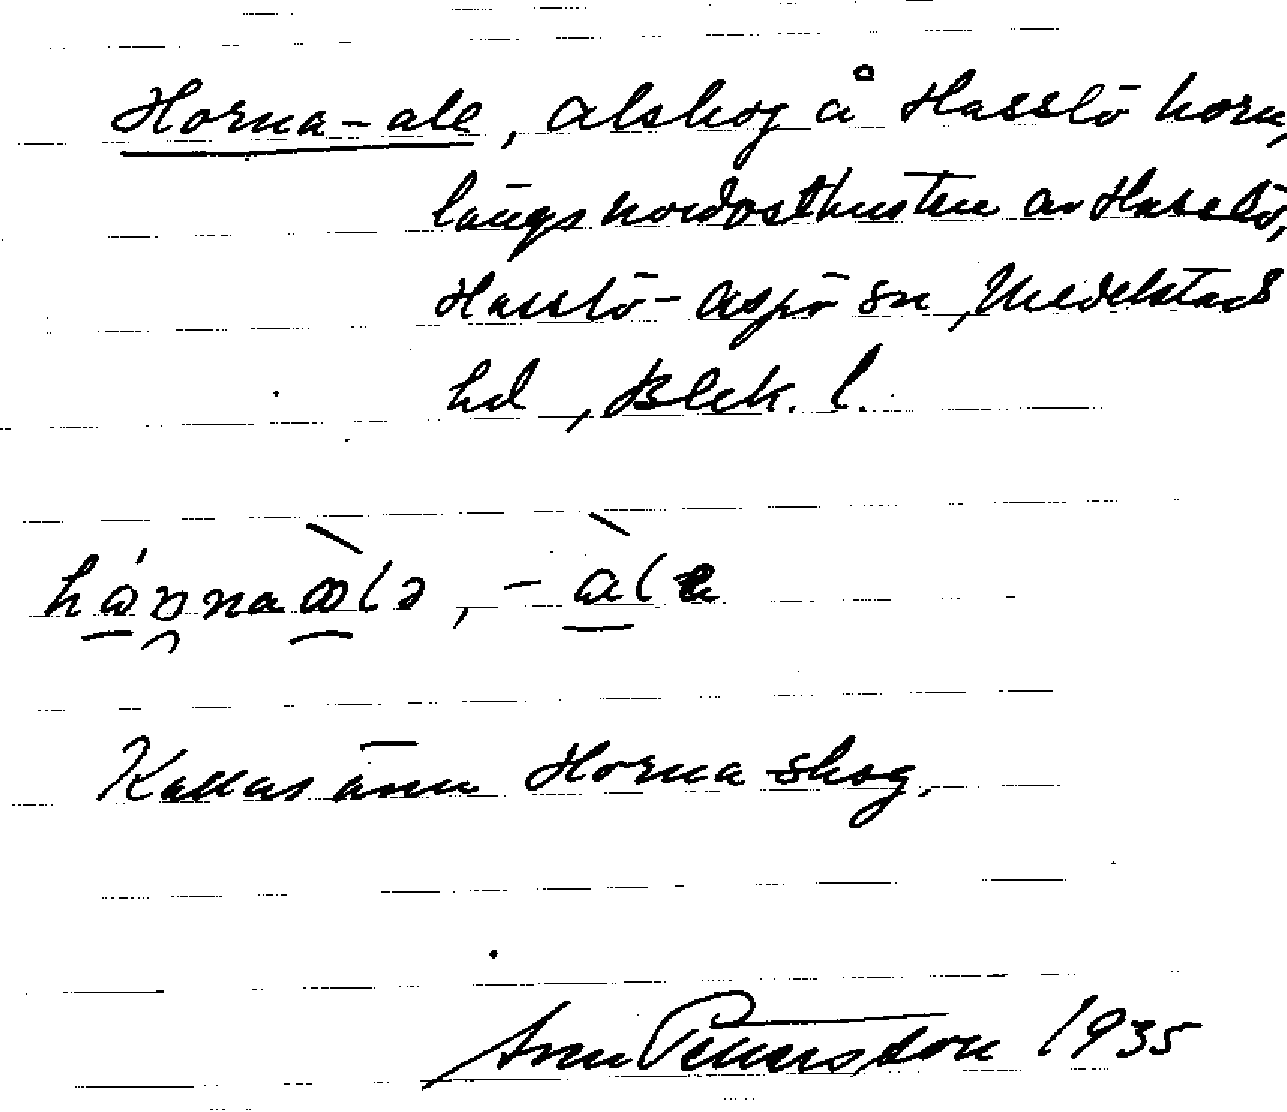 Horna-ale, alskog å Hasslö horn,
längs nordostkusten av Hasslö,
Hasslö-Aspö sn, Medelstads
hd, Blek. l.
Kallas även Horna skog.
Sven Pettersson 1935